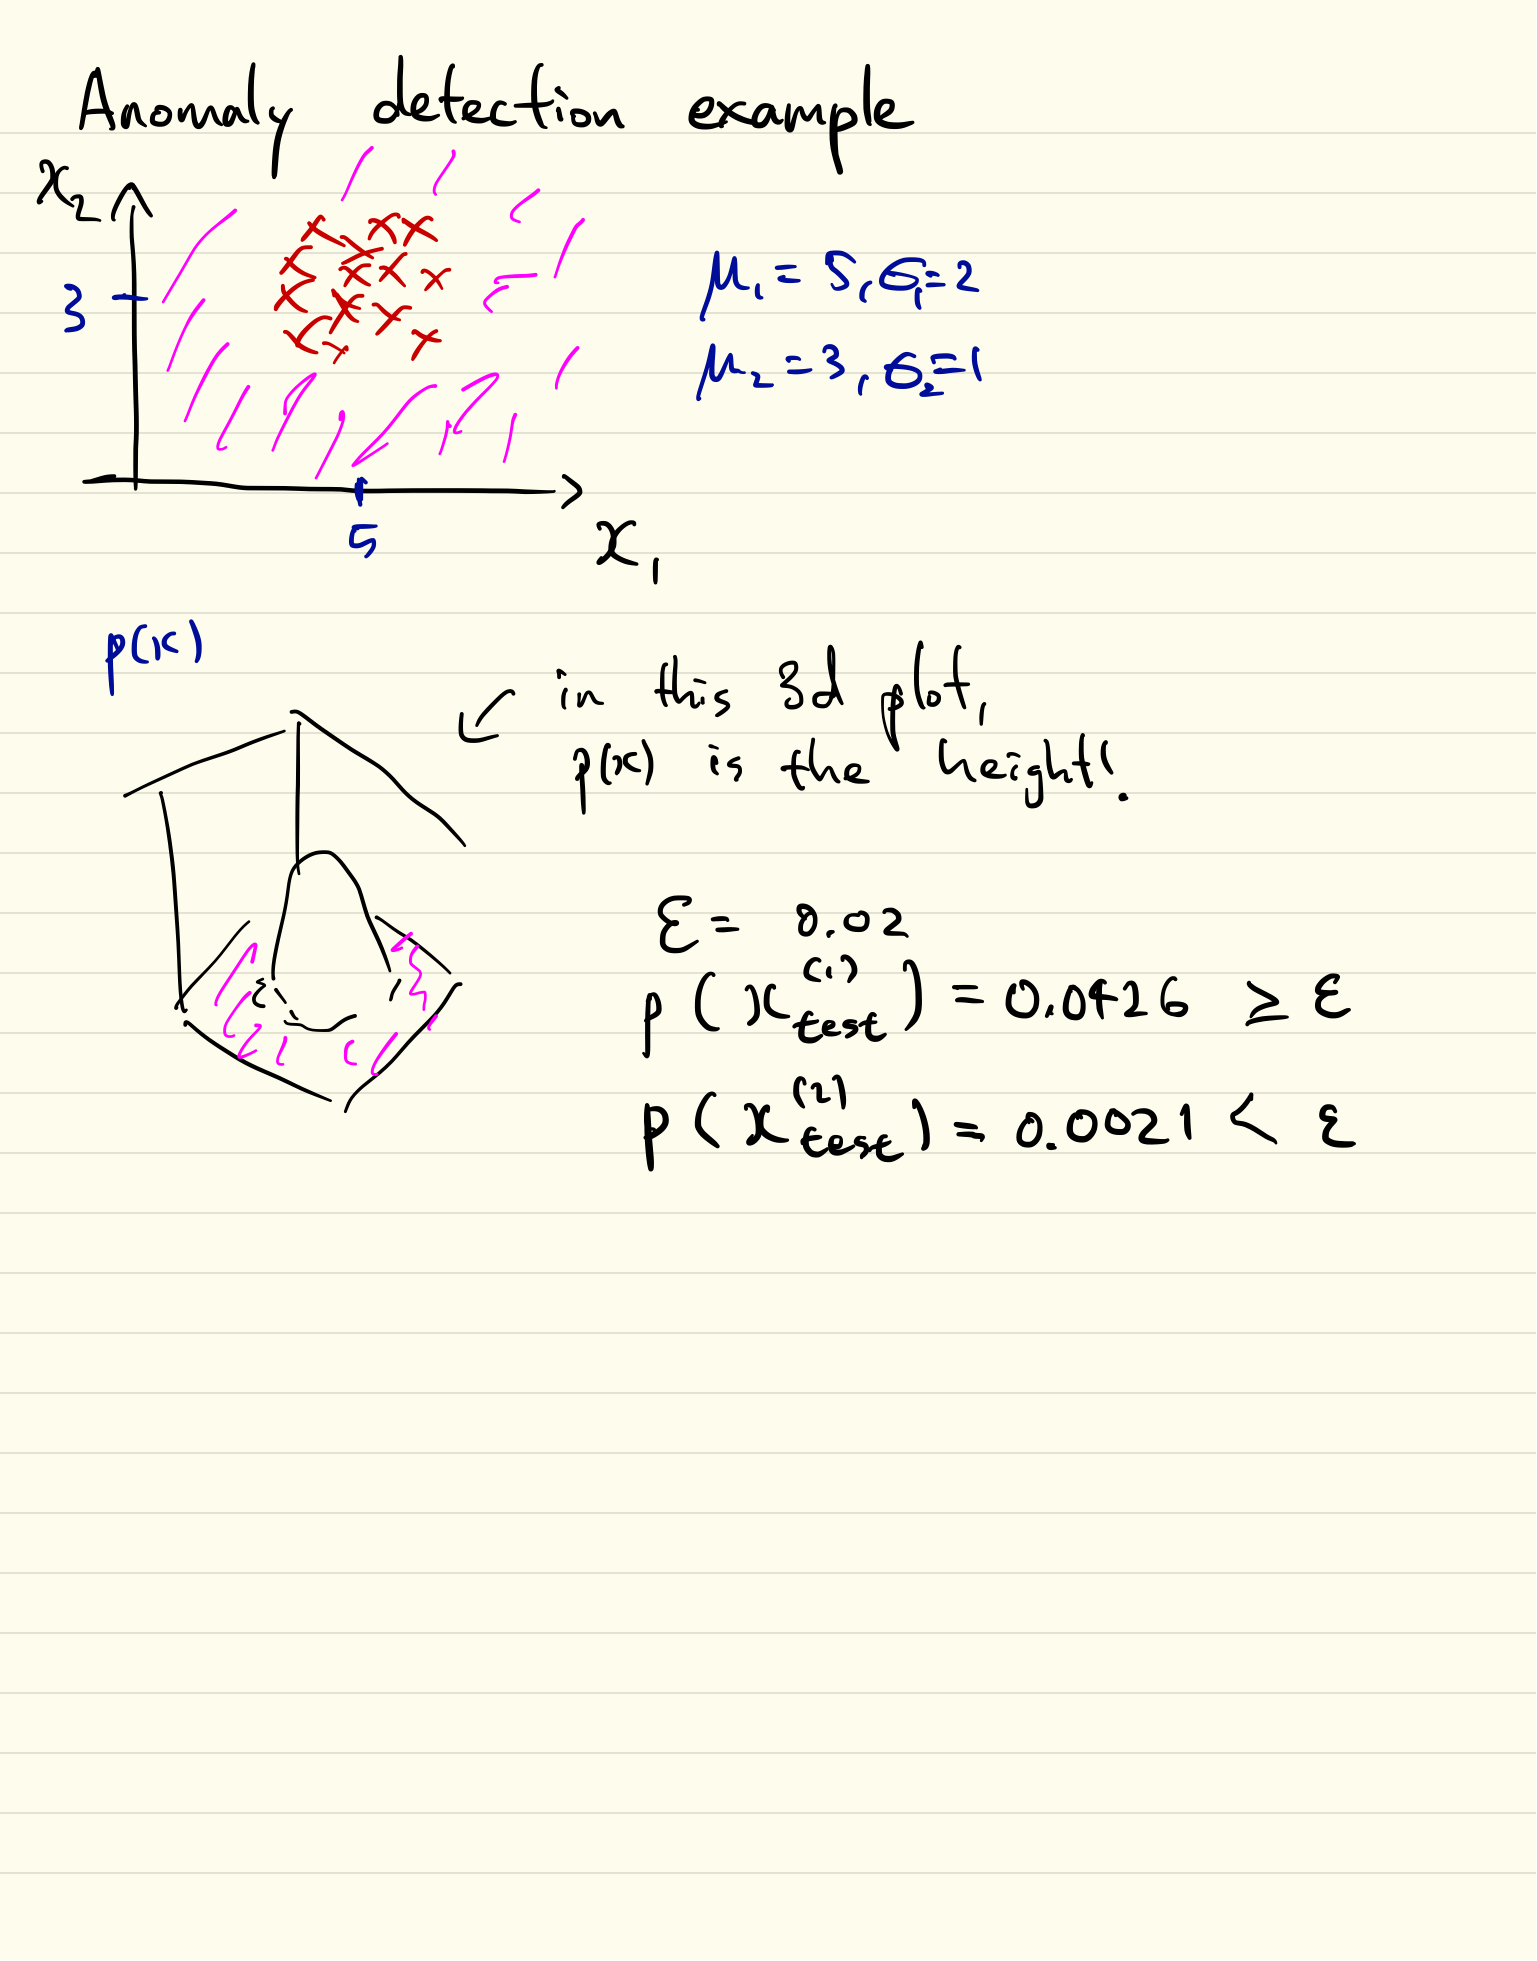 Anomaly detection example
x₂
3
μ₁ = 5, σ₁ = 2
μ₂ = 3, σ₂ = 1
5
x₁
p(x)
in this 3d plot,
p(x) is the height!
ε = 0.02
p(x_test^(1)) = 0.0426 ≥ ε
p(x_test^(2)) = 0.0021 < ε